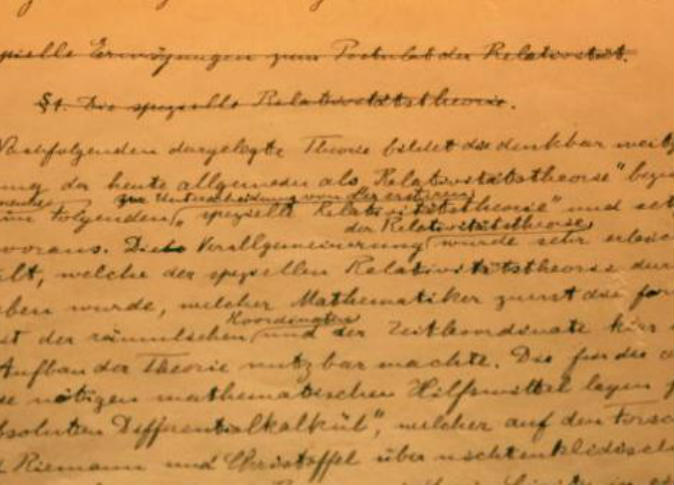 pzielle Erwägungen zum Postulat der Relativität.
§1. Die spezielle Relativitätstheorie.
Nachfolgenden dargelegte Theorie bildet die denkbar weitg
ung der heute allgemein als „Relativitätstheorie" beze
zur Unterscheidung von der ersteren
im folgenden „spezielle Relativitätstheorie" und set
der Relativitätstheorie
voraus. Die Verallgemeinerung wurde sehr erleic
alt, welche der speziellen Relativitätstheorie dur
eben wurde, welcher Mathematiker zuerst die for
Koordinaten
st der räumlichen und der Zeitkoordinate klar
Aufbau der Theorie nutzbar machte. Die für die a
e nötigen mathematischen Hilfsmittel lagen f
bsoluten Differentialkalkül", welcher auf den Forsc
Riemann und Christoffel über nichteuklidische